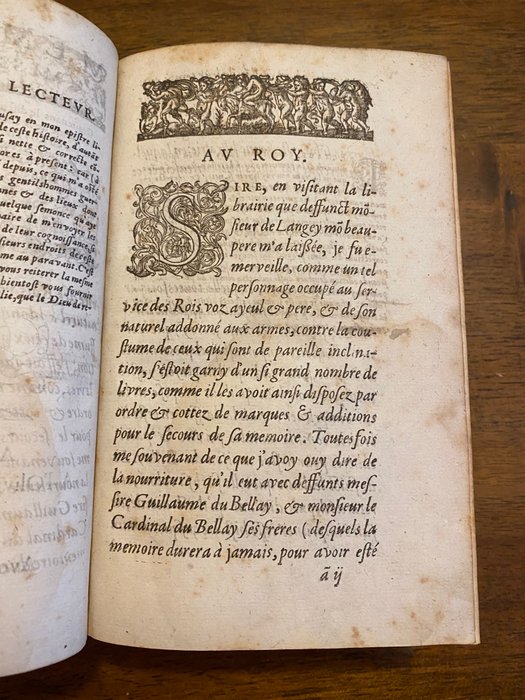 LECTEVR.
usay en mon epistre li-
ceste histoire, d'autāt
nette & correcte cō-
ores à present: car
depuis, ce qui m'a esté
gentilshommes guer-
& des lieux dont
quelque semonce qu'aye
naire de m'envoyer les
de leur cognoissance,
sieurs endroits de ceste
me au paravant. C'est
vous reiterer la mesme
bientost vous fournir
lie, que le Dieu de re-
AV ROY.
SIRE, en visitant la li-
brairie que deffunct mō
sieur de Langey mō beau-
pere m'a laißée, je fu e-
merveillé, comme un tel
personnage occupé au ser-
vice des Rois voz ayeul & pere, & de son
naturel addonné aux armes, contre la cou-
stume de ceux qui sont de pareille inclina-
tion, s'estoit garny d'un si grand nombre de
livres, comme il les avoit ainsi disposez par
ordre & cottez de marques & additions
pour le secours de sa memoire. Toutesfois
me souvenant de ce que j'avoy ouy dire de
la nourriture, qu'il eut avec deffunts mes-
sire Guillaume du Bellay, & monsieur le
Cardinal du Bellay ses freres (desquels la
memoire durera à jamais, pour avoir esté
ã ij